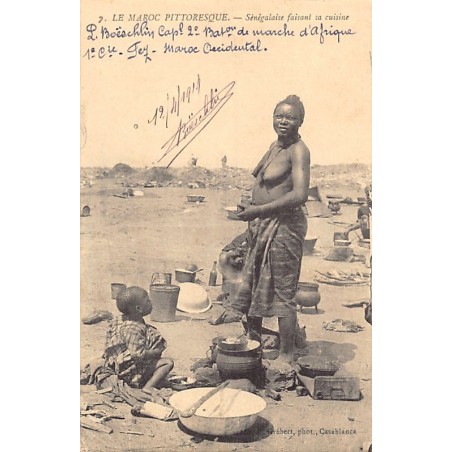 7. LE MAROC PITTORESQUE. — Sénégalaise faisant sa cuisine
P. Boëschlin Capl 2e Baton de marche d'Afrique
1e Cie - Fez - Maroc Occidental.
phot., Casablanca